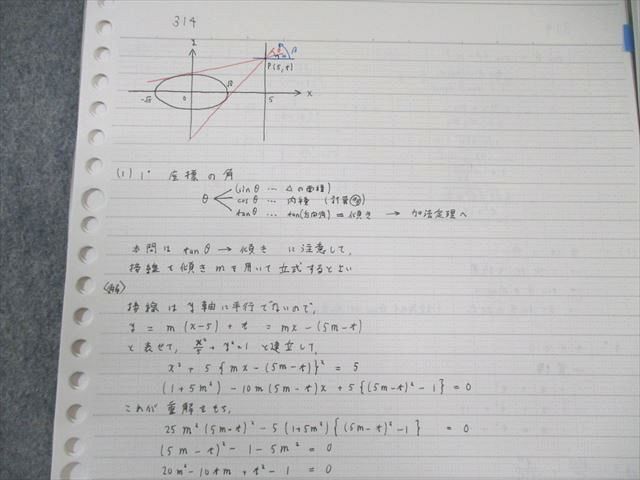 314
y
P(5, t)
-√5
0
√5
5
x
(1) 1° 座標の角
θ
sinθ … △の面積)
cosθ … 内積 (計算
tanθ … tan(有向角) = 傾き → 加法定理へ
本問は tanθ → 傾き に注意して,
接線を傾き m を用いて立式するとよい
<解>
接線は y 軸に平行でないので,
y = m(x-5) + t = mx - (5m-t)
と表せて, x²/5 + y² = 1 と連立して,
x² + 5{mx - (5m-t)}² = 5
(1+5m²) - 10m(5m-t)x + 5{(5m-t)² - 1} = 0
これが重解をもち,
25m²(5m-t)² - 5(1+5m²){(5m-t)² - 1} = 0
(5m-t)² - 1 - 5m² = 0
20m² - 10tm + t² - 1 = 0